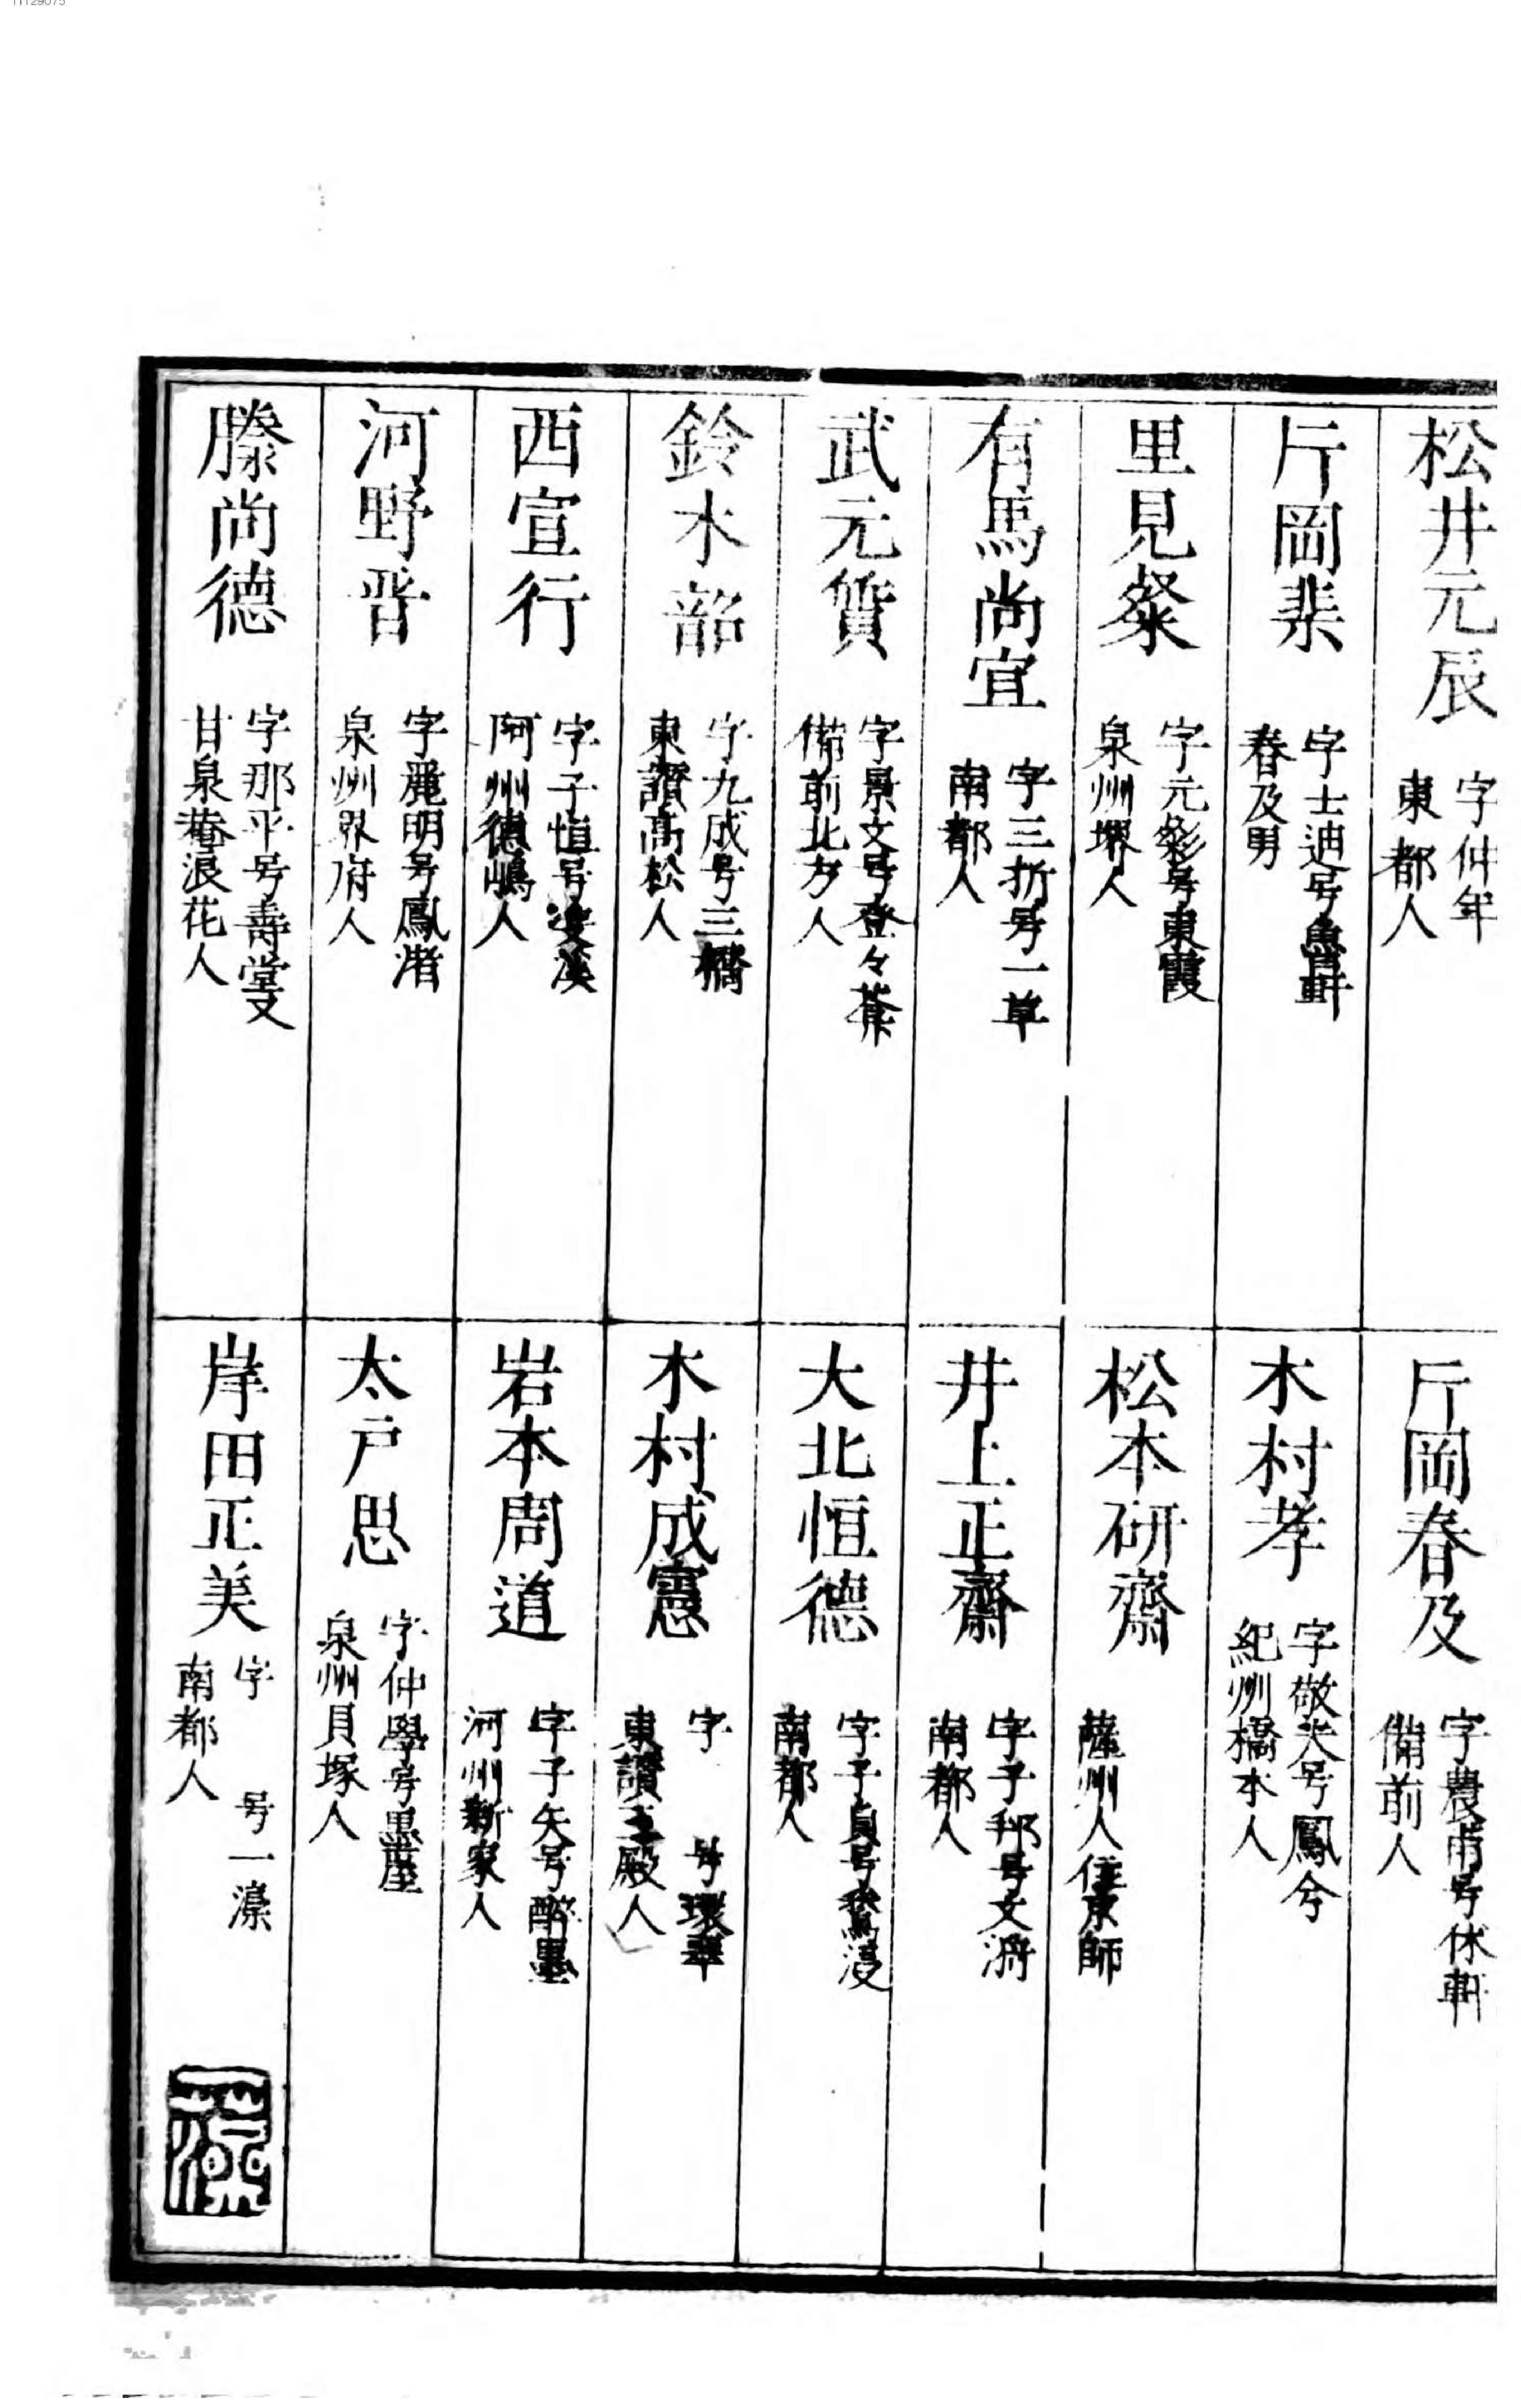 松井元辰
字仲年
東都人
片岡棐
字士迪号魯軒
春及男
里見粲
字元粲号東霞
泉州堺人
有馬尚宜
字三折号一草
南都人
武元質
字景文号登々菴
備前北方人
鈴木韶
字九成号三橋
東讃高松人
西宣行
字子恒号
阿州德嶋人
河野晋
字麗明号鳳渚
泉州界府人
滕尚德
字那平号壽堂又
甘泉菴浪花人
片岡春及
字農甫号休軒
備前人
木村孝
字敬夫号鳳兮
紀州橋本人
松本研齋
薩州人住京師
井上正齋
字子邦号文
南都人
大北恒德
字子貞号
南都人
木村成憲
字 号環翠
東讃王殿人
岩本周道
字子矢号醉墨
河州新家人
太戸思
字仲學号黒崖
泉州貝塚人
岸田正美
字 号一濳
南都人